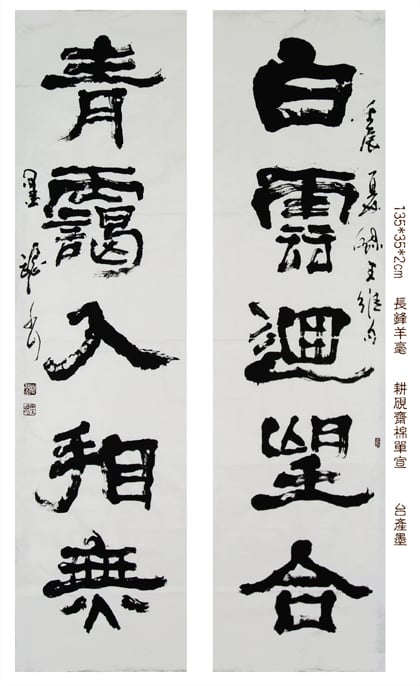 135*35*2cm 長鋒羊毫 耕硯齋棉單宣 台產墨
白雲迴望合
壬辰夏録王維句
青靄入看無
墨